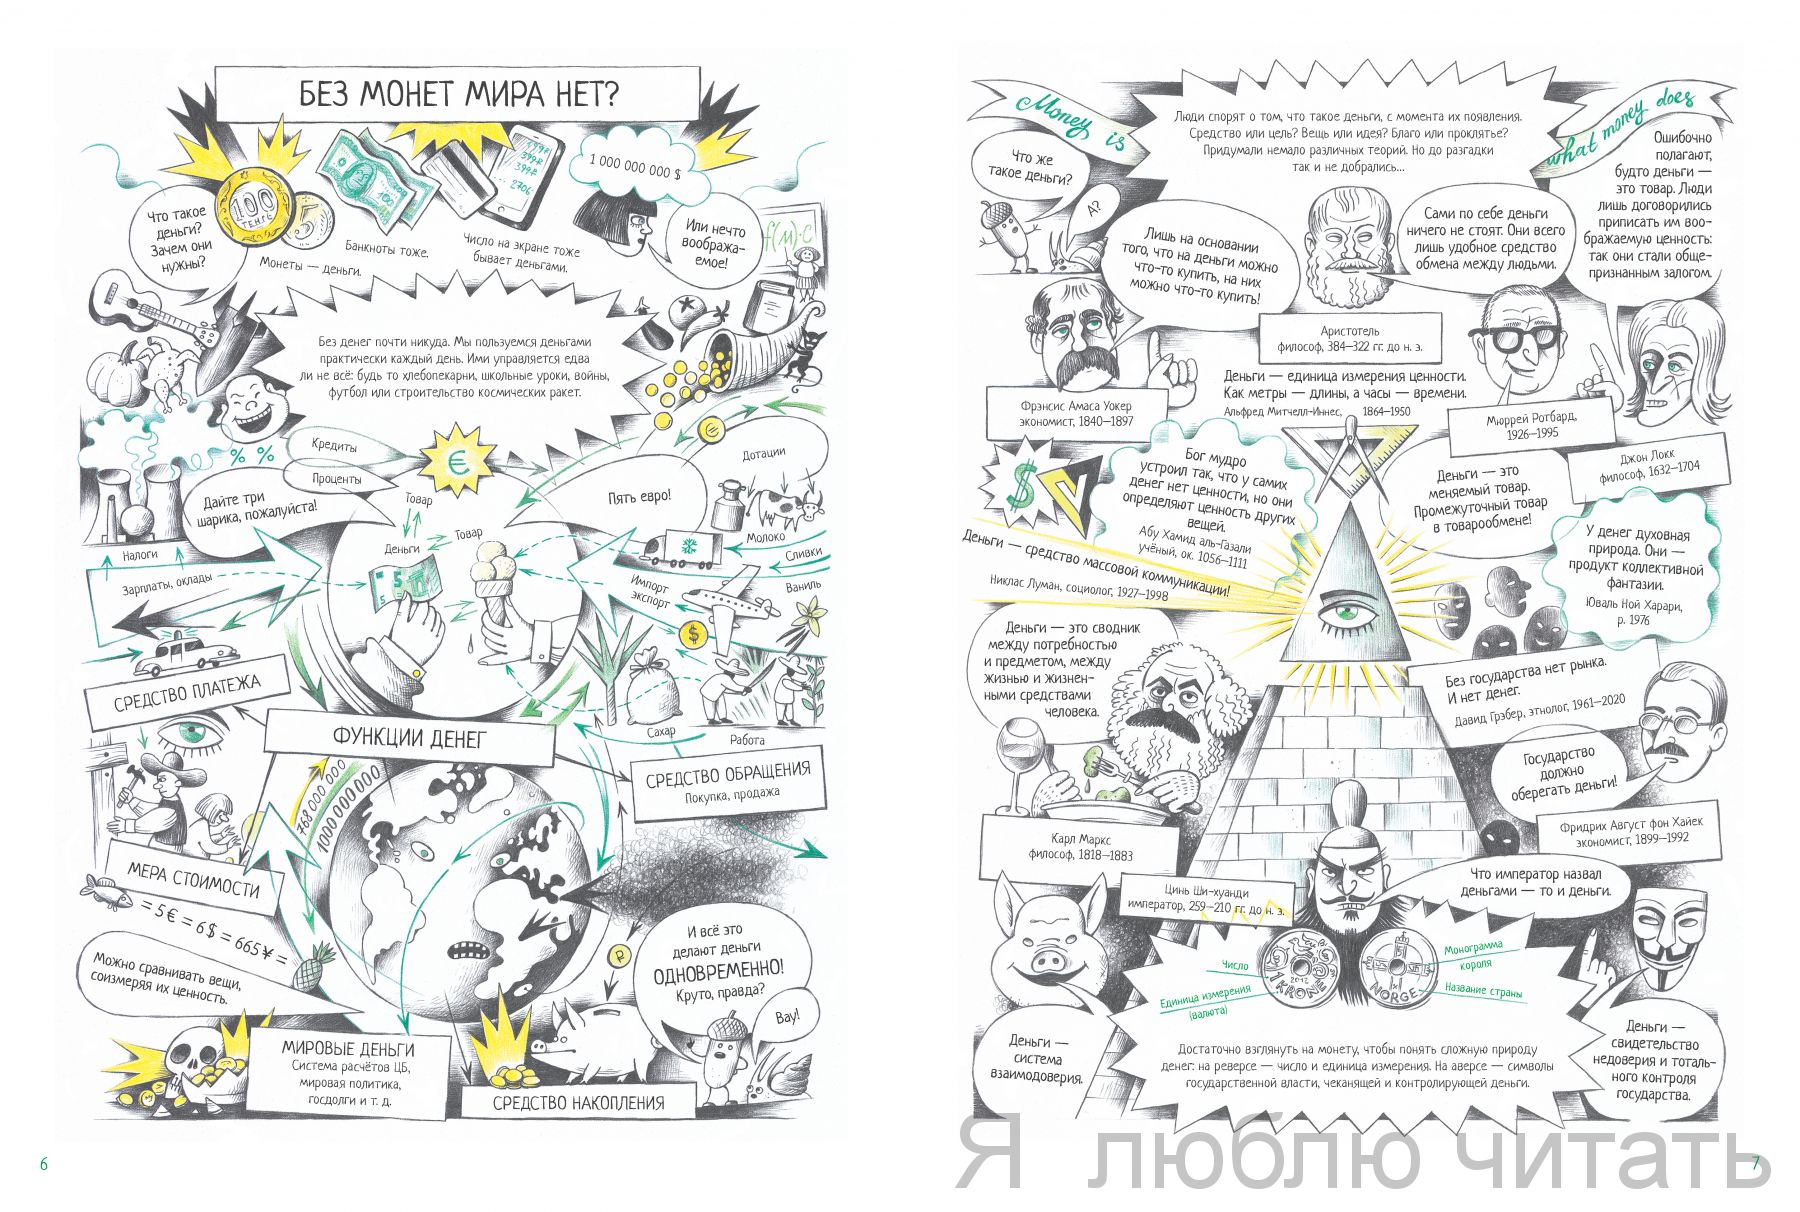 БЕЗ МОНЕТ МИРА НЕТ?
Что такое
деньги?
Зачем они
нужны?
100
ТЕНГЕ
5
Монеты — деньги.
Банкноты тоже.
399₽
399₽
2706
Число на экране тоже
бывает деньгами.
1 000 000 000 $
Или нечто
вообража-
емое!
Без денег почти никуда. Мы пользуемся деньгами
практически каждый день. Ими управляется едва
ли не всё: будь то хлебопекарни, школьные уроки, войны,
футбол или строительство космических ракет.
% %
Кредиты
Проценты
€
Дотации
Дайте три
шарика, пожалуйста!
Товар
Пять евро!
Товар
Деньги
Молоко
Сливки
Ваниль
Налоги
Зарплаты, оклады
Импорт
экспорт
$
СРЕДСТВО ПЛАТЕЖА
Сахар
Работа
ФУНКЦИИ ДЕНЕГ
СРЕДСТВО ОБРАЩЕНИЯ
Покупка, продажа
768 000 000
1000 000 000
МЕРА СТОИМОСТИ
= 5€ = 6$ = 665¥ =
Можно сравнивать вещи,
соизмеряя их ценность.
₽
И всё это
делают деньги
ОДНОВРЕМЕННО!
Круто, правда?
Вау!
МИРОВЫЕ ДЕНЬГИ
Система расчётов ЦБ,
мировая политика,
госдолги и т. д.
СРЕДСТВО НАКОПЛЕНИЯ
6
Money is
what money does
Люди спорят о том, что такое деньги, с момента их появления.
Средство или цель? Вещь или идея? Благо или проклятье?
Придумали немало различных теорий. Но до разгадки
так и не добрались...
Что же
такое деньги?
А?
Лишь на основании
того, что на деньги можно
что-то купить, на них
можно что-то купить!
Фрэнсис Амаса Уокер
экономист, 1840—1897
Сами по себе деньги
ничего не стоят. Они всего
лишь удобное средство
обмена между людьми.
Аристотель
философ, 384—322 гг. до н. э.
Ошибочно
полагают,
будто деньги —
это товар. Люди
лишь договорились
приписать им воо-
бражаемую ценность:
так они стали обще-
признанным залогом.
Джон Локк
философ, 1632—1704
Деньги — единица измерения ценности.
Как метры — длины, а часы — времени.
Альфред Митчелл-Иннес, 1864—1950
Мюррей Ротбард,
1926—1995
Деньги — это
меняемый товар.
Промежуточный товар
в товарообмене!
$
Бог мудро
устроил так, что у самих
денег нет ценности, но они
определяют ценность других
вещей.
Абу Хамид аль-Газали
учёный, ок. 1056—1111
Деньги — средство массовой коммуникации!
Никлас Луман, социолог, 1927—1998
У денег духовная
природа. Они —
продукт коллективной
фантазии.
Юваль Ной Харари,
р. 1976
Деньги — это сводник
между потребностью
и предметом, между
жизнью и жизнен-
ными средствами
человека.
Карл Маркс
философ, 1818—1883
Без государства нет рынка.
И нет денег.
Давид Грэбер, этнолог, 1961—2020
Государство
должно
оберегать деньги!
Фридрих Август фон Хайек
экономист, 1899—1992
Цинь Ши-хуанди
император, 259—210 гг. до н. э.
Что император назвал
деньгами — то и деньги.
Число
Единица измерения
(валюта)
1 KRONE
2012
NORGE
Монограмма
короля
Название страны
Деньги —
система
взаимодоверия.
Деньги —
свидетельство
недоверия и тоталь-
ного контроля
государства.
Достаточно взглянуть на монету, чтобы понять сложную природу
денег: на реверсе — число и единица измерения. На аверсе — символы
государственной власти, чеканящей и контролирующей деньги.
Я люблю читать
7